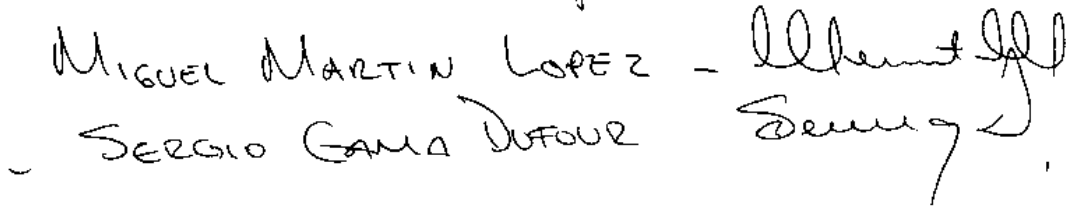 MIGUEL MARTIN LOPEZ -
- SERGIO GAMA DUFOUR